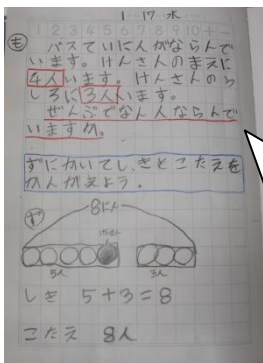 1 17 水
1 2 3 4 5 6 7 8 9 10 + −
も
バスていに人がならんで
います。けんさんのまえに
4人います。けんさんのう
しろに3人います。
ぜんぶでなん人ならんで
いますか。
ずにかいてしきとこたえを
かんがえよう。
ず
8にん
けんさん
5人 3人
しき 5+3=8
こたえ 8人